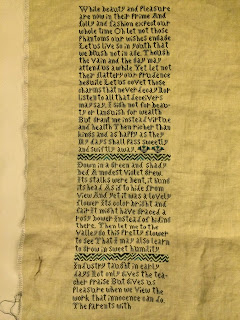 While beauty and pleasure
are now in their prime And
folly and fashion expect our
whole time Oh let not those
Phantoms our wishes engage
Let us live so in youth that
we blush not in age. Though
the vain and the gay may
attend us awhile Yet let not
their flattery our prudence
beguile Let us covet those
charms that never decay Nor
listen to all that deceivers
may say. I sigh not for beauty
or languish for wealth
But grant me instead Virtue
and health Then richer than
kings and as happy as they
My days shall pass sweetly
and swiftly away.
Down in a green and shady
bed A modest violet grew.
Its stalks were bent, it hung
its head As if to hide from
View And yet it was a lovely
flower Its color bright and
fair It might have graced a
rosy bower Instead of hiding
there. Then let me to the
valley go this pretty flower
to see That I may also learn
to grow in sweet humility
Industry taught in early
days Not only gives the tea-
cher praise But gives us
pleasure when we view The
work that innocence can do.
The parents with